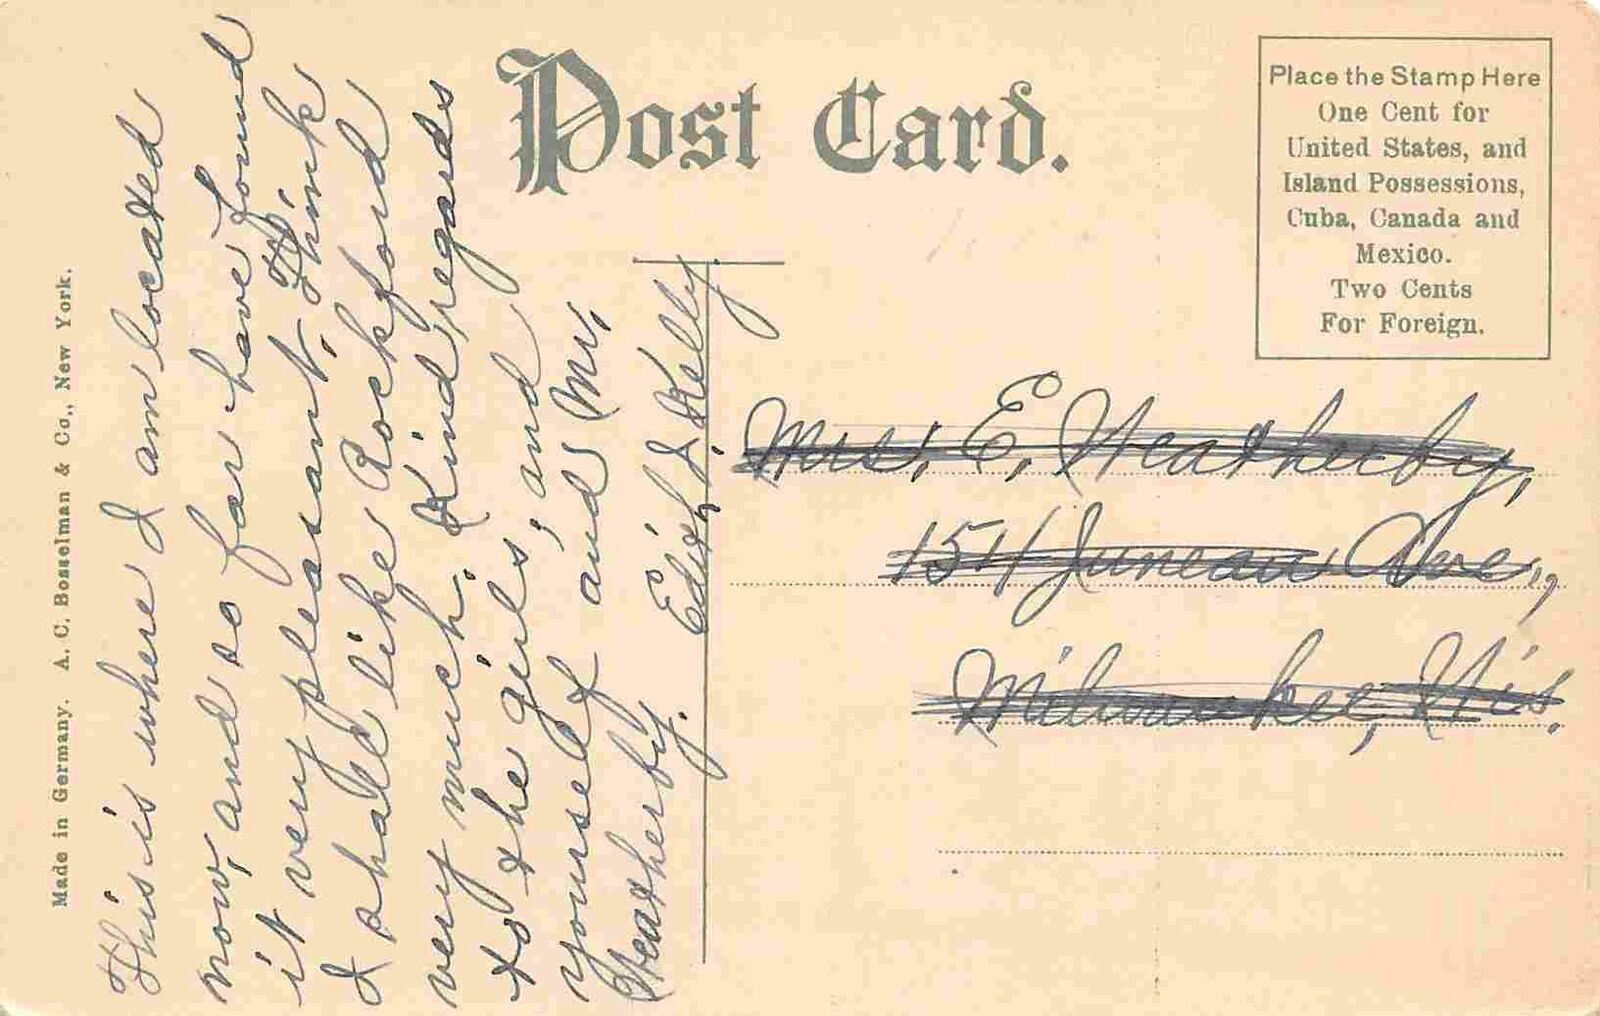 Post Card.
Place the Stamp Here
One Cent for
United States, and
Island Possessions,
Cuba, Canada and
Mexico.
Two Cents
For Foreign.
Made in Germany. A. C. Bosselman & Co., New York.
This is where I am located
now, and so far have found
it very pleasant. Think
I shall like Rockford
very much. Kind regards
to the girls, and
yourself and Mr.
Weatherby. Edith J. Kelly.
Mrs. E. Weatherby,
1511 Juneau Ave.,
Milwaukee, Wis.